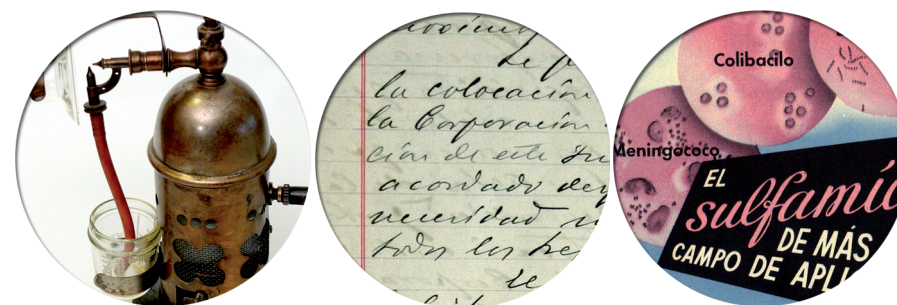 se
la colocación
la Corporación
ción de este
acordado
necesidad
todos los
se
Colibacilo
Meningococo
EL
sulfamí
DE MÁS
CAMPO DE APLI